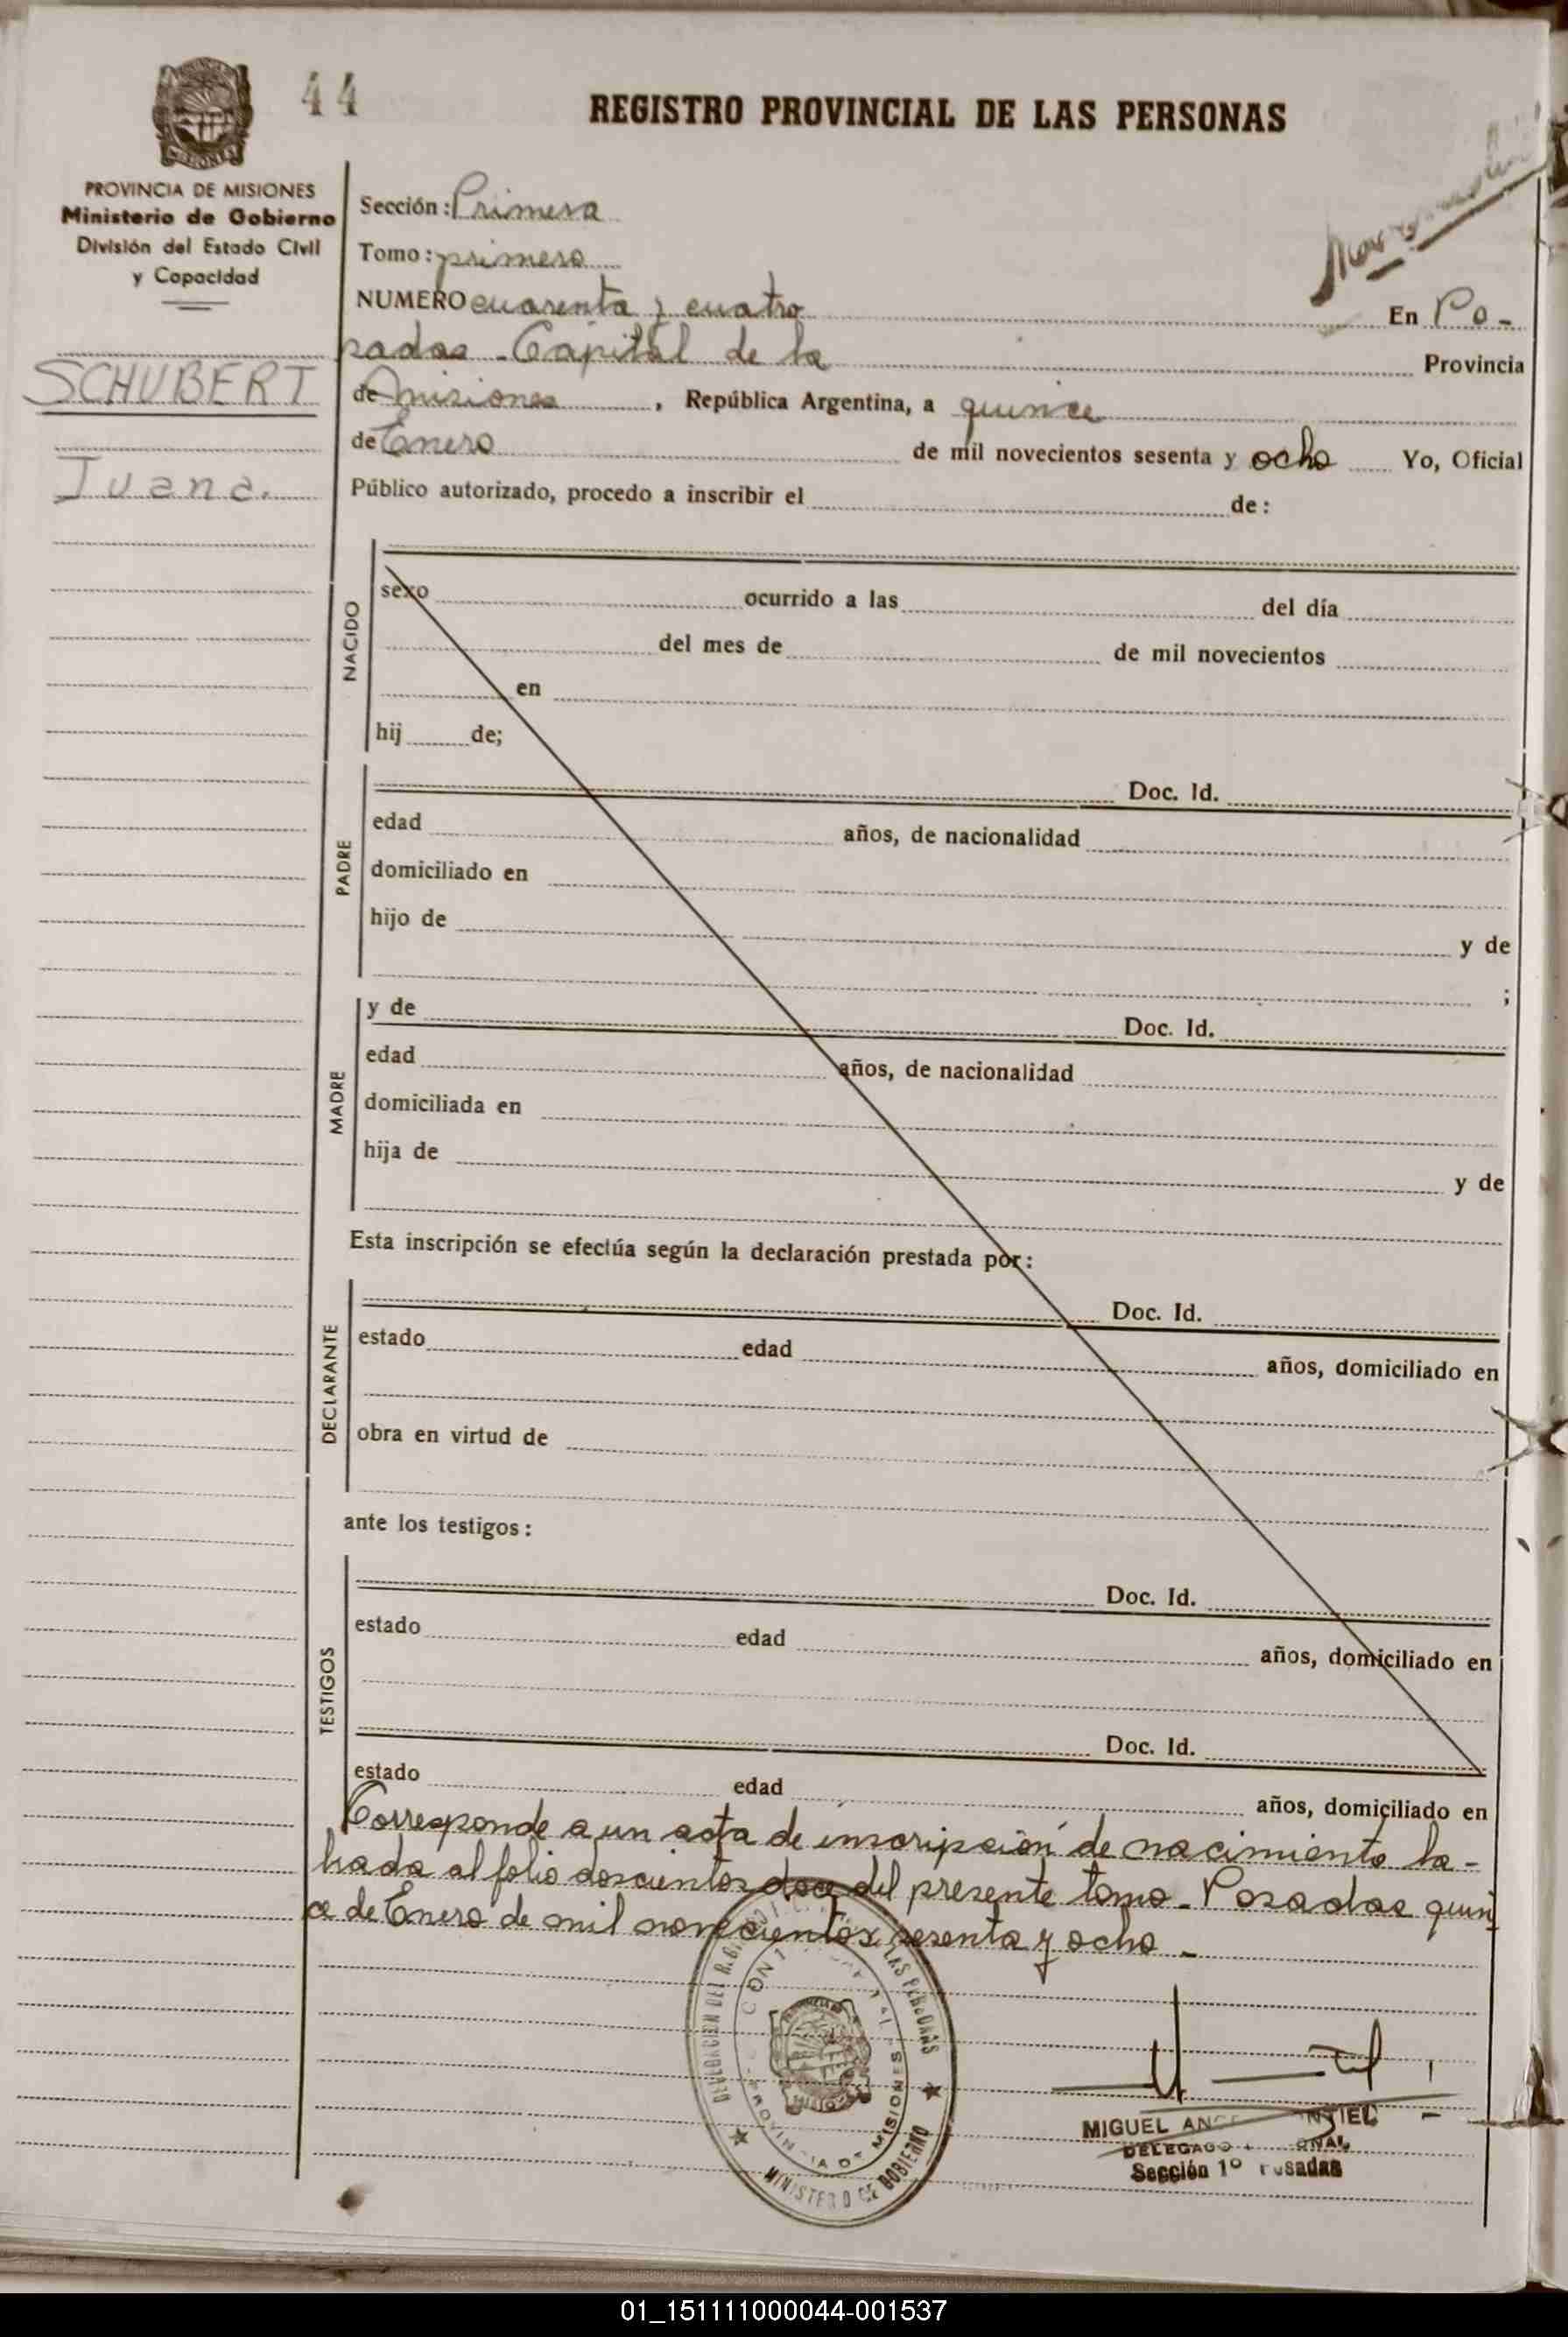 44
REGISTRO PROVINCIAL DE LAS PERSONAS
PROVINCIA DE MISIONES
Ministerio de Gobierno
División del Estado Civil
y Capacidad
SCHUBERT
Juana.
Sección: Primera
Tomo: primero
NUMERO cuarenta y cuatro En Po-
sadas - Capital de la Provincia
de Misiones, República Argentina, a quince
de Enero de mil novecientos sesenta y ocho Yo, Oficial
Público autorizado, procedo a inscribir el de:
NACIDO
sexo ocurrido a las del día
del mes de de mil novecientos
en
hij de;
PADRE
Doc. Id.
edad años, de nacionalidad
domiciliado en
hijo de y de
;
MADRE
y de Doc. Id.
edad años, de nacionalidad
domiciliada en
hija de y de
Esta inscripción se efectúa según la declaración prestada por:
DECLARANTE
Doc. Id.
estado edad años, domiciliado en
obra en virtud de
ante los testigos:
TESTIGOS
Doc. Id.
estado edad años, domiciliado en
Doc. Id.
estado edad años, domiciliado en
Corresponde a un acta de inscripción de nacimiento la-
brada al folio doscientos doce del presente tomo - Posadas quin
ce de Enero de mil novecientos sesenta y ocho -
LAS PERSONAS
PROVINCIA DE MISIONES
MINISTERIO DE GOBIERNO
MIGUEL
DELEGADO
Sección 1º Posadas
01_151111000044-001537